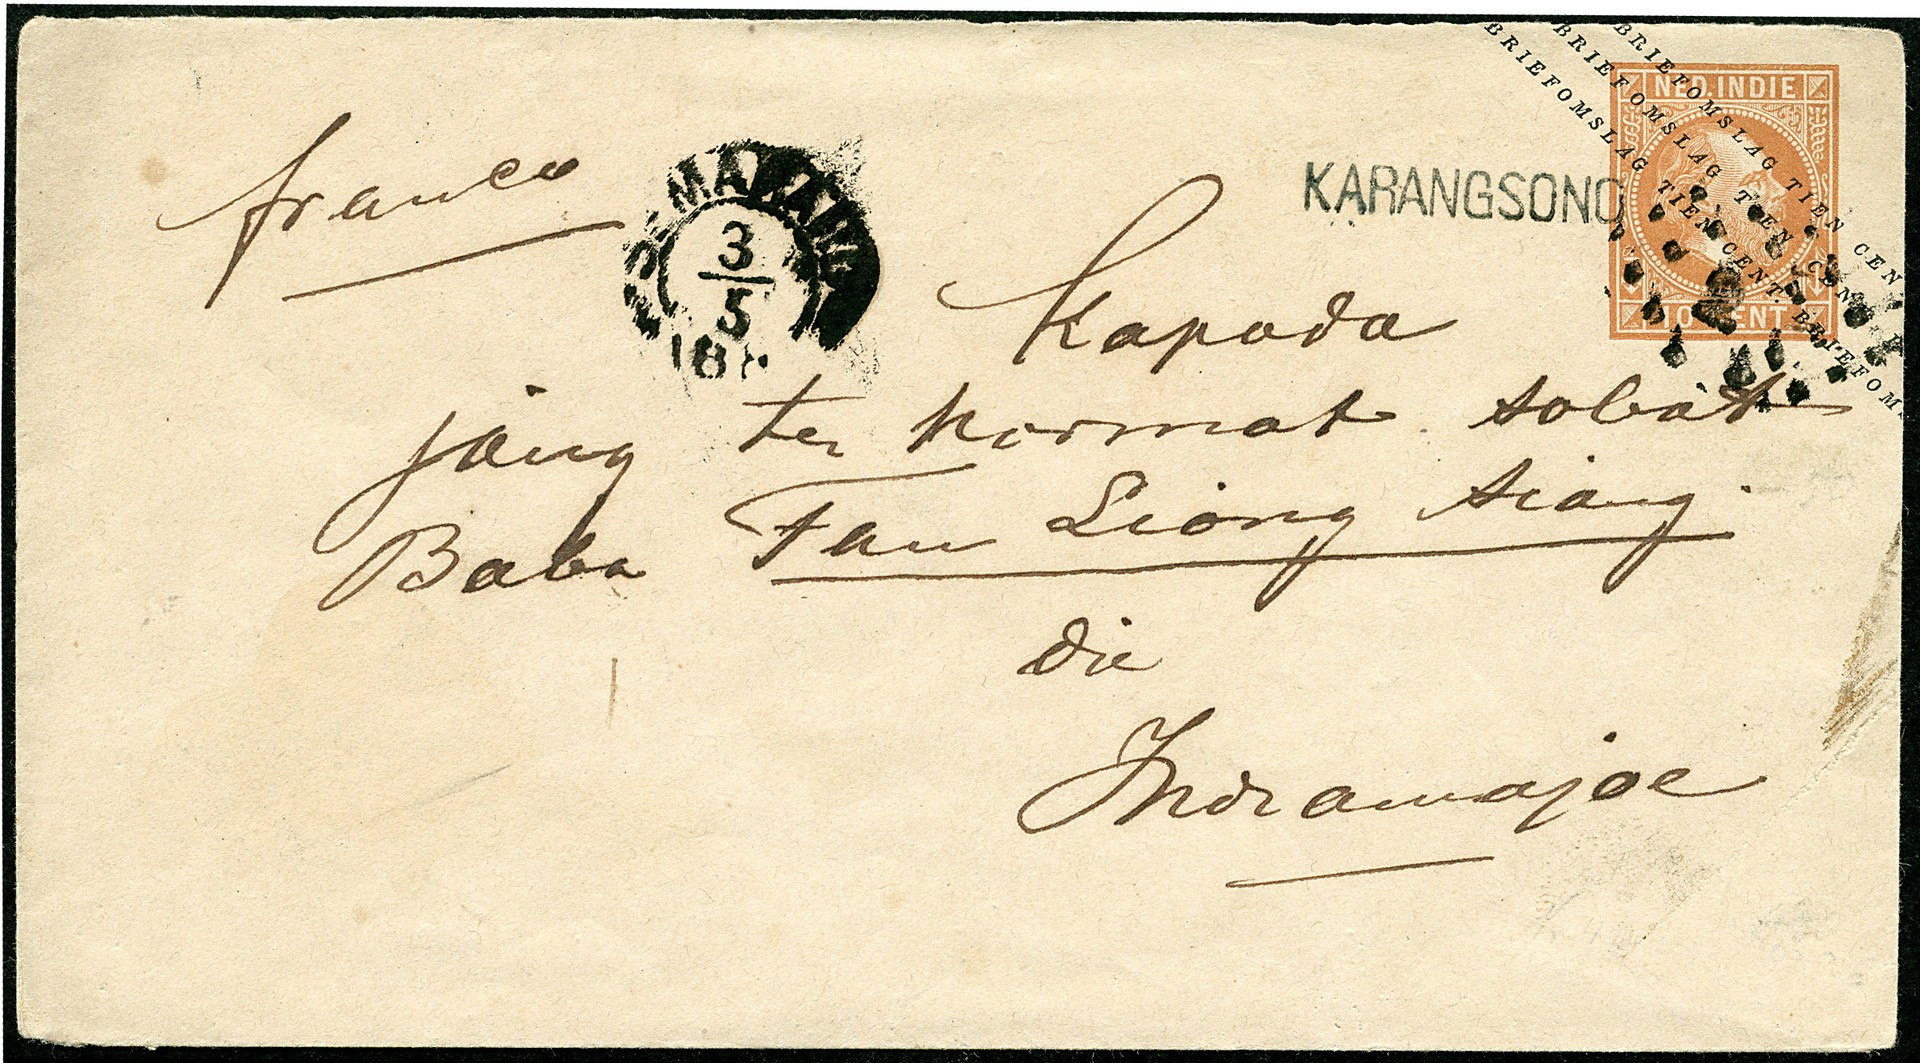 BRIEFOMSLAG TIEN CENT
BRIEFOMSLAG TIEN CENT
BRIEFOMSLAG TIEN CENT BRIEFOMS
NED. INDIE
10 CENT
KARANGSONG
franco
SEMARANG
3
5
188
Kapada
jang ter hormat sobat
Baba Tan Liong Siang
die
Indramajoe